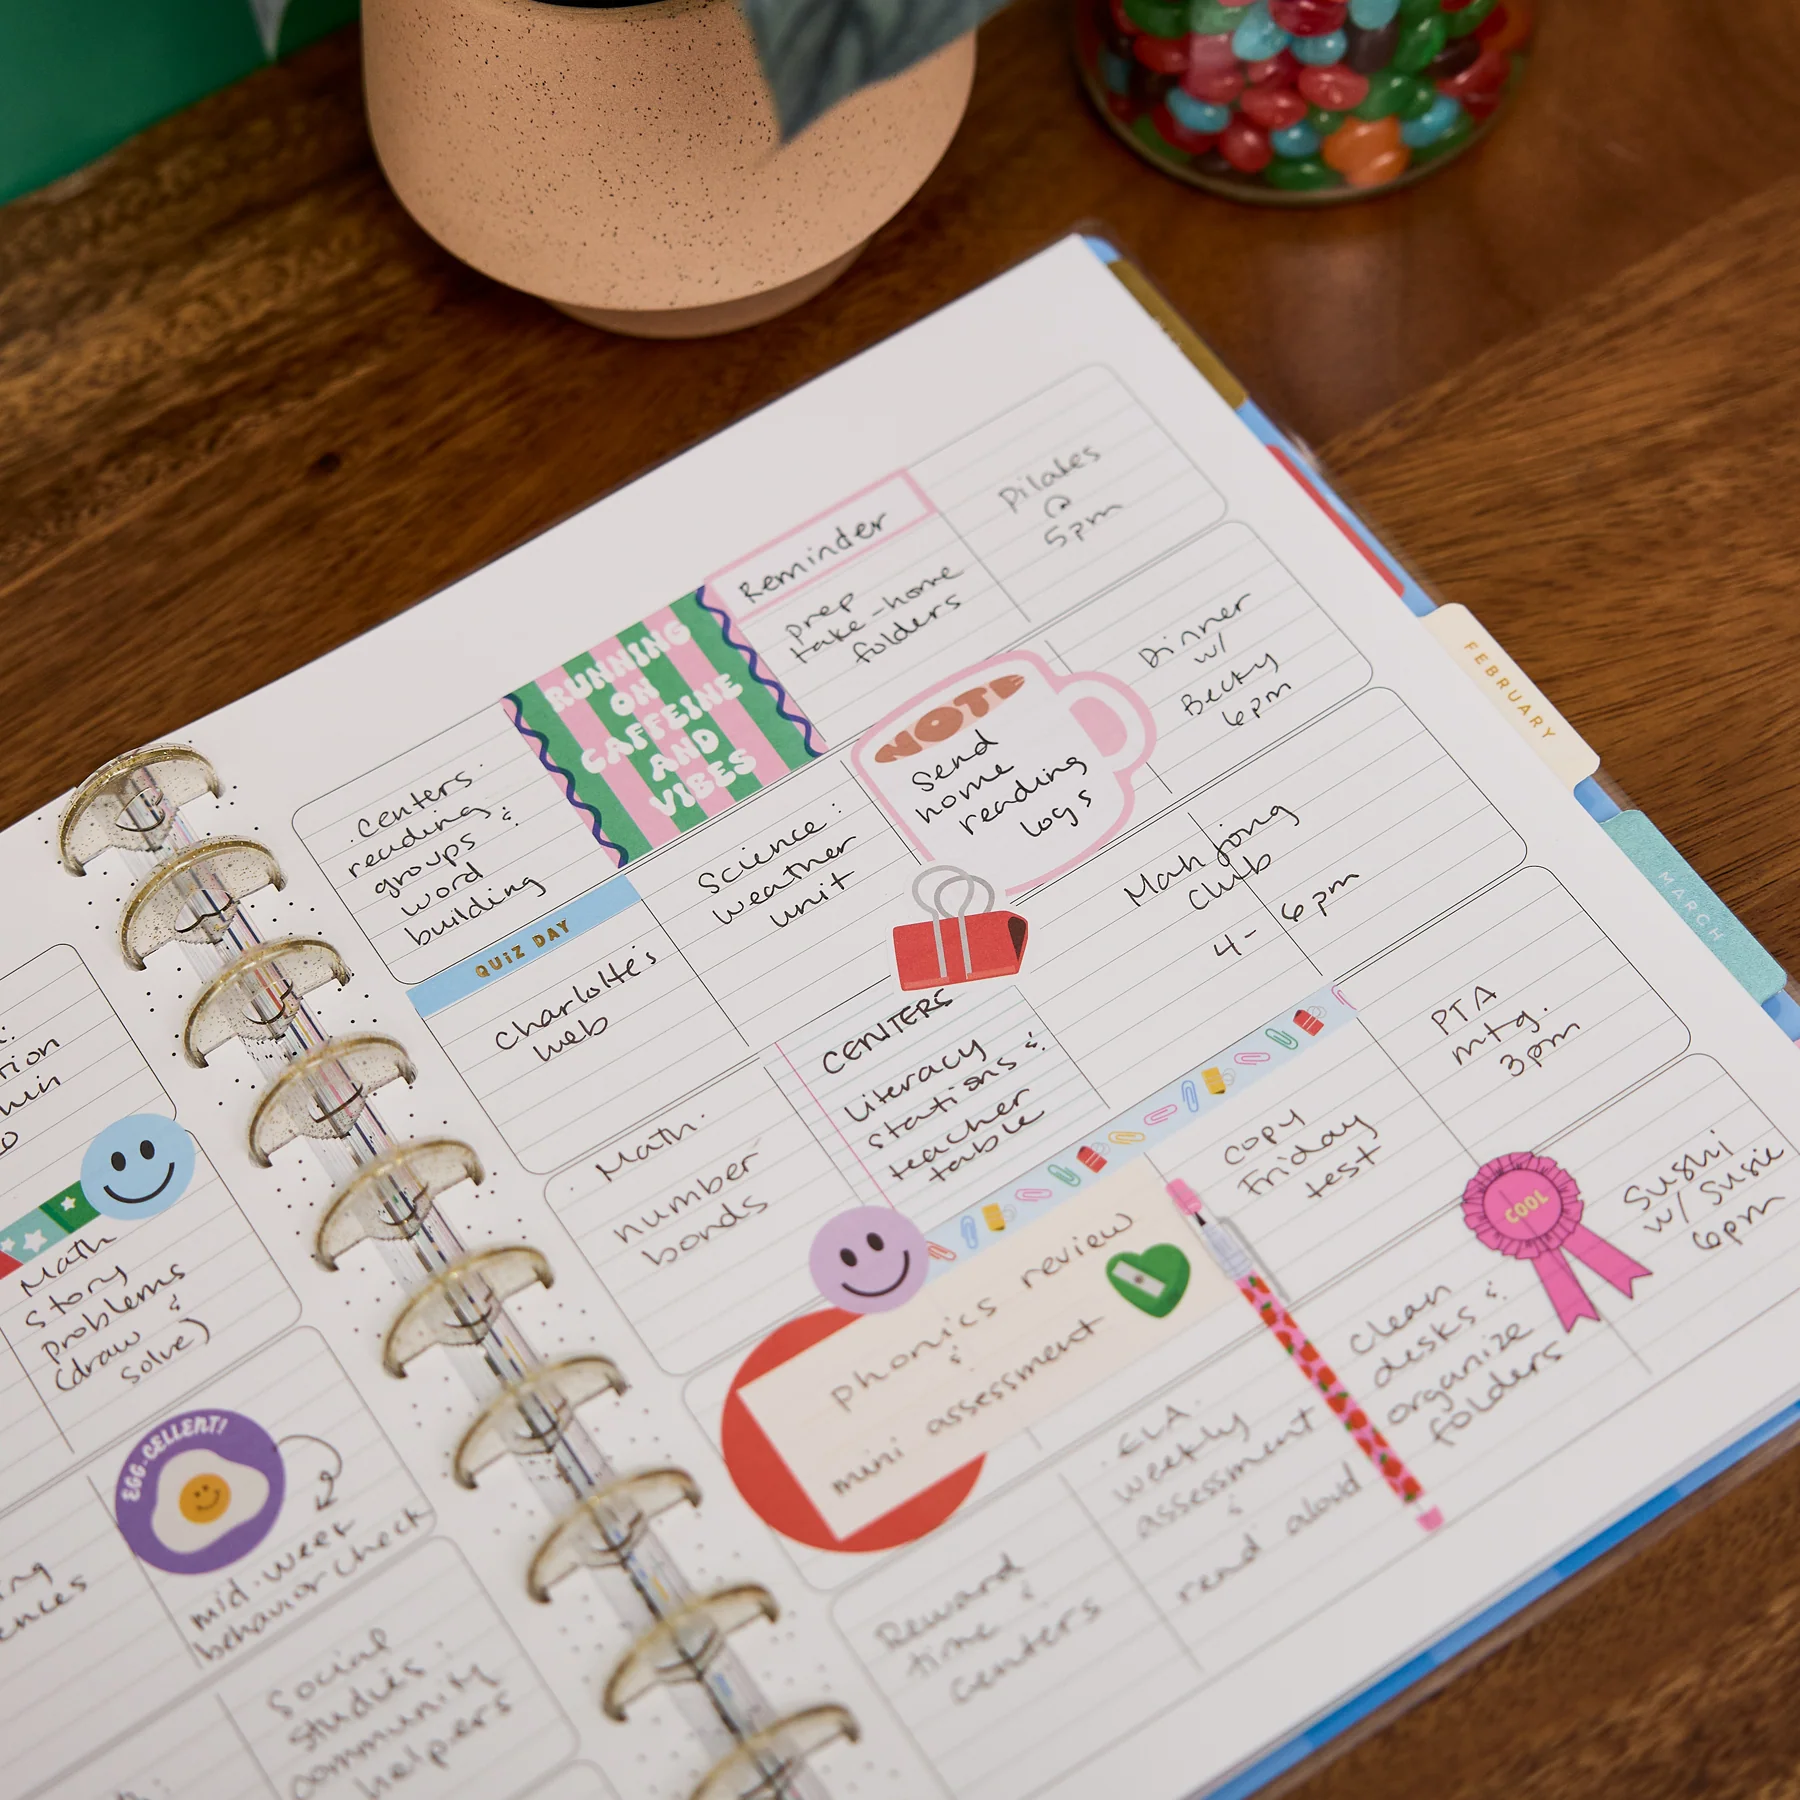 Reminder
prep
take-home
folders
Pilates
@
5pm
RUNNING
ON
CAFFEINE
AND
VIBES
centers.
reading
groups &
word
building
QUIZ DAY
Charlotte's
Web
Science:
weather
unit
NOTE
Send
home
reading
logs
Dinner
w/
Becky
6pm
Math.
number
bonds
CENTERS
Literacy
stations &
teacher
table
Mah jong
Club
4-6pm
phonics review
&
mini assessment
copy
Friday
test
PTA
mtg.
3pm
Reward
time &
centers
ELA.
weekly
assessment
&
read aloud
clean
desks &
organize
folders
COOL
Sushi
w/ Susie
6pm
FEBRUARY
MARCH
Math
Story
problems
(draw &
solve)
EGG-CELLENT!
mid-week
behavior check
Social
studies:
community
helpers